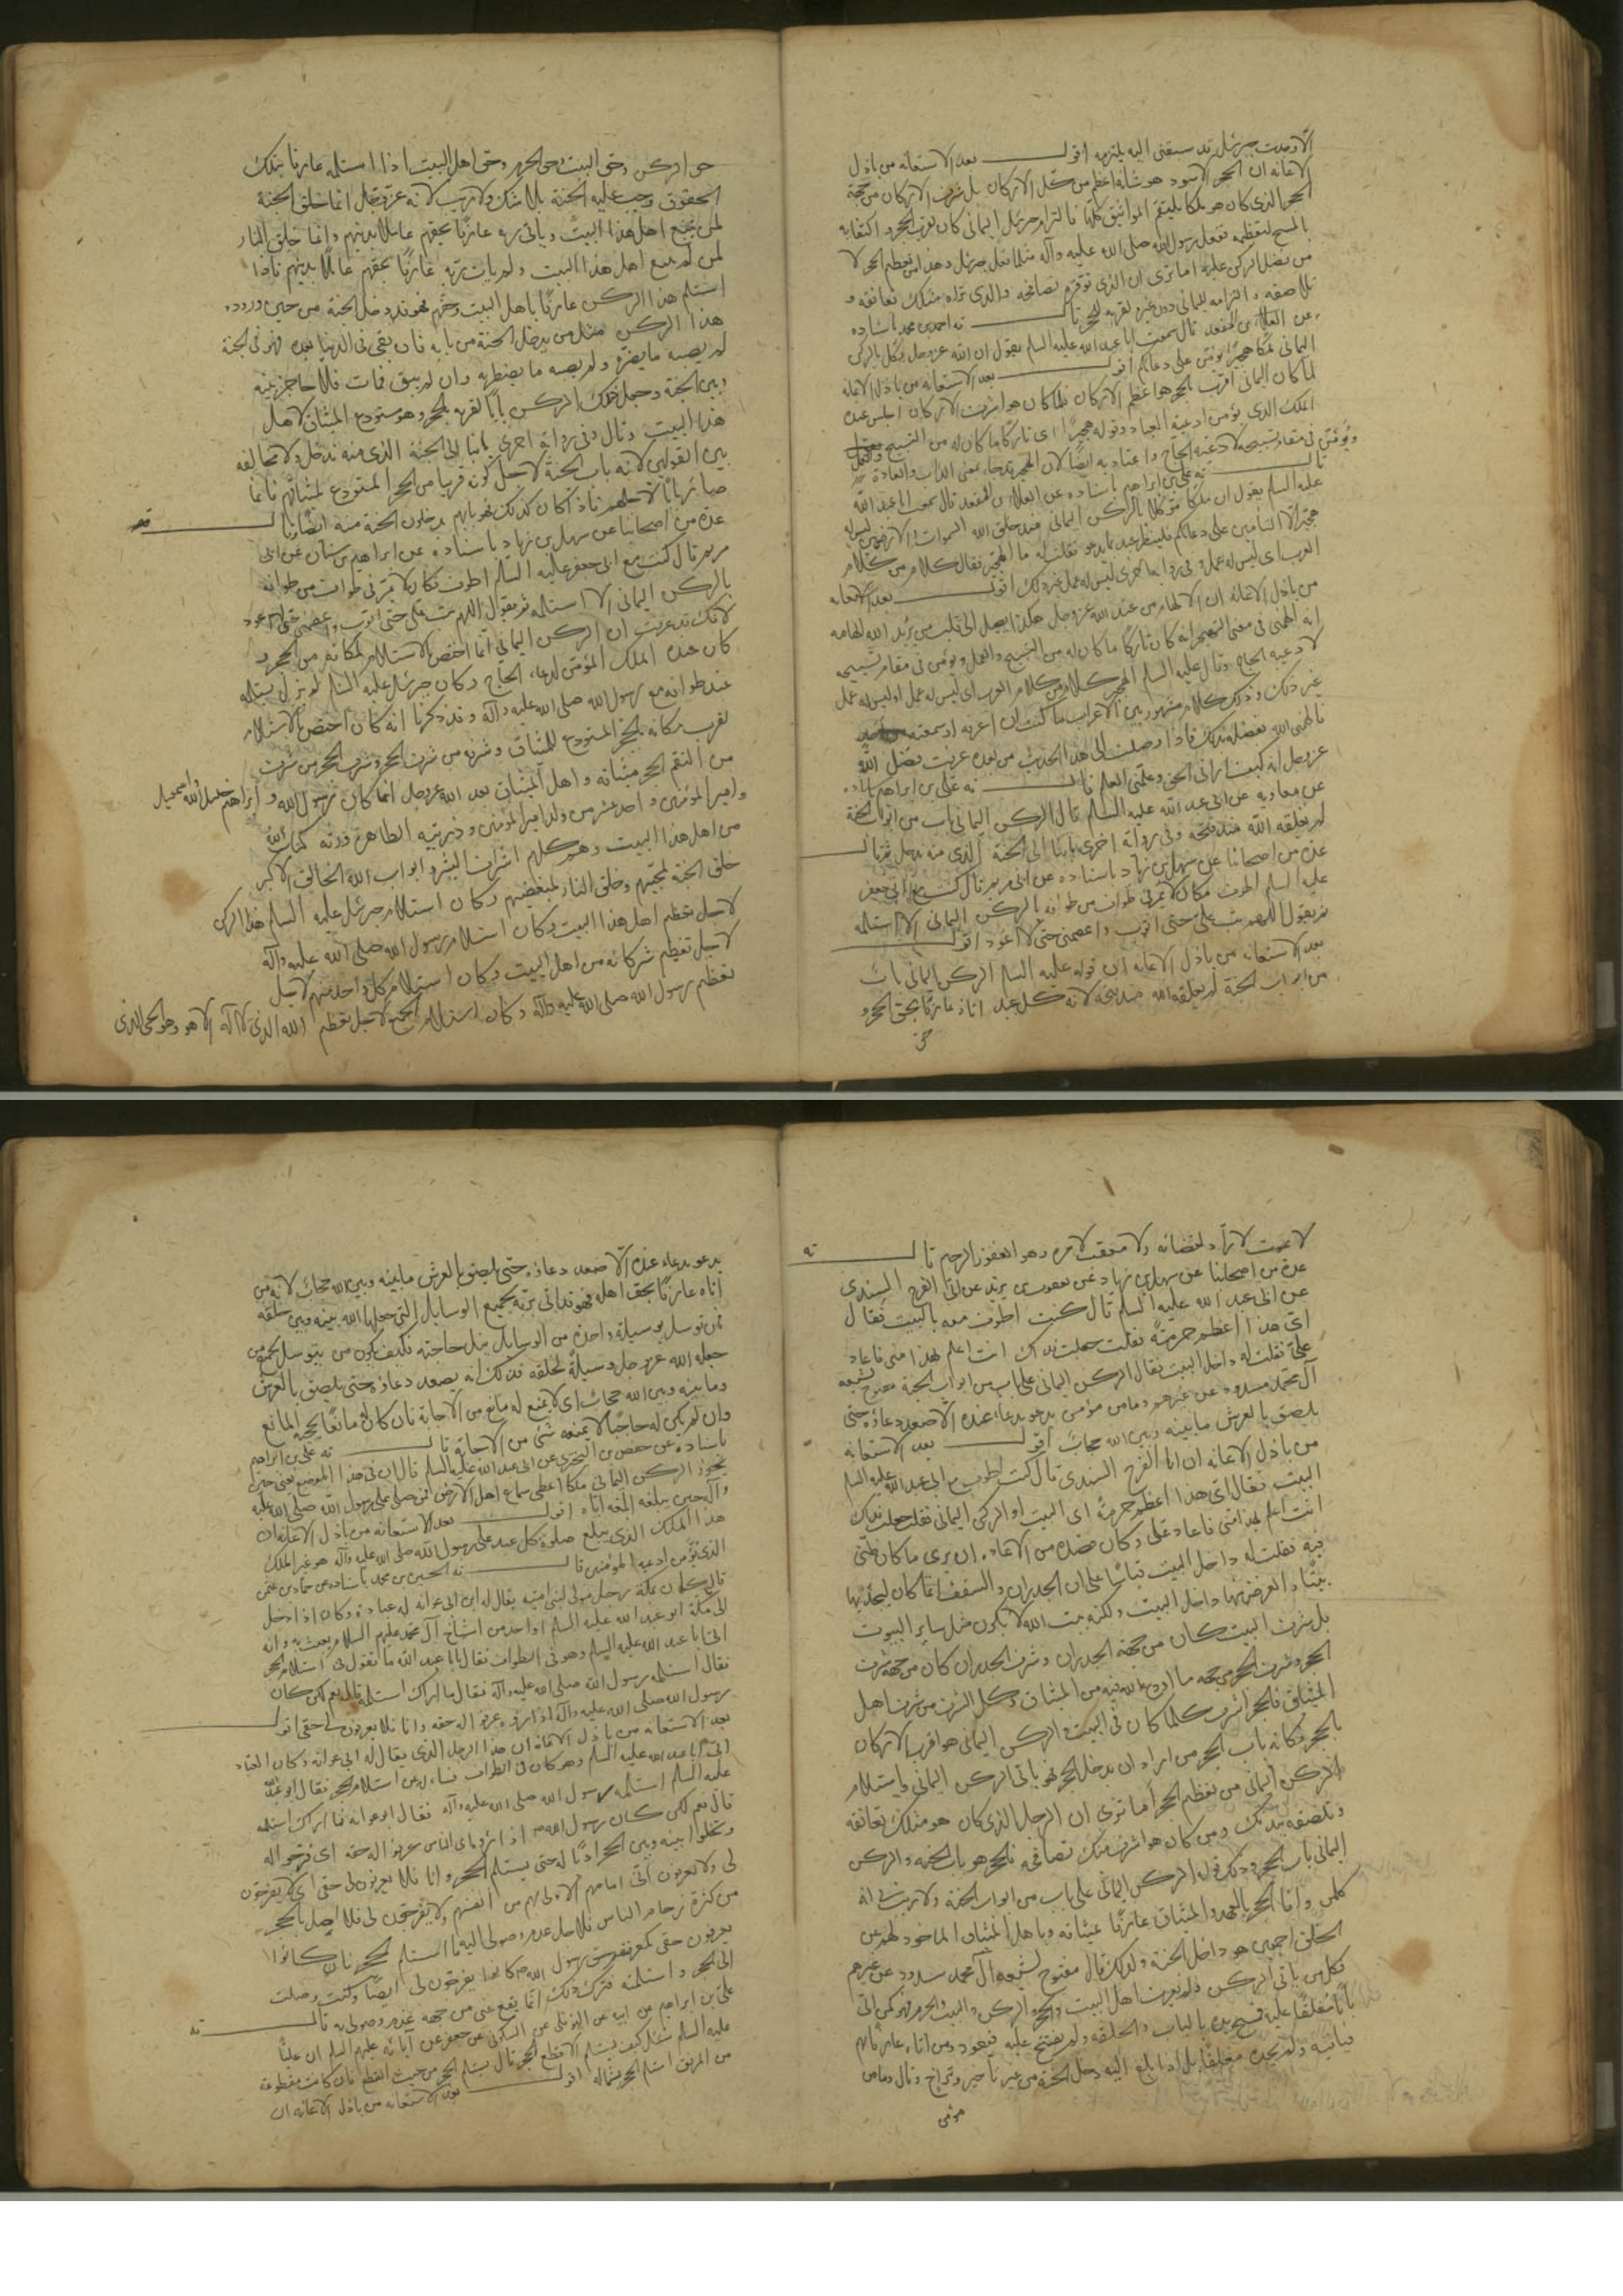 الا وجدت جبرئيل قد سبقنى اليه يلتزمه اقول بعد الاستعانه من باذل
الاعانه ان الحجر الاسود هو شانه اعظم من كل الاركان بل شرف الاركان من جهة
الحجر الذى كان هو ملكا يلتقم المواثيق كلها فالتزام جبرئيل اليمانى كان لقرب الحجر و اكتفائه
بالمسح لتعظيمه ففعل رسول الله صلى الله عليه وآله مثلما فعل جبرئيل وهذا من تعظيم الحجر لا
من تفضل الركن عليه اما ترى ان الذى توقره تصافحه والذى تراه مثلك تعانقه و
تلاصقه و التزامه لليمانى دون غيره لقربه للحجر قال ته احمد بن محمد باسناده
عن العلاء بن المقعد قال سمعت ابا عبد الله عليه السلام يقول ان الله عز وجل وكل بالركن
اليمانى ملكا هجيرا يؤمن على دعائكم اقول بعد الاستعانه من باذل الاعانه
لما كان اليمانى اقرب بالحجر هو اعظم الاركان فلما كان هو اشرف الاركان اجلس عنده
الملك الذى يؤمن ادعية العباد وقوله هجيرا اى تاركا ما كان له من التسبيح والعمل
ويؤمن فى مقام تسبيحه لادعية الحاج و اعتاد به ايضا لان الهجير قد جاء بمعنى الداب والعادة
قال ته على بن ابراهيم باسناده عن العلاء بن المقعد قال سمعت ابا عبد الله
عليه السلام يقول ان ملكا موكلا بالركن اليمانى منذ خلق الله السموات والارضين ليس له
هجير الا التامين على دعائكم فلينظر عبد بما يدعو فقلت له ما الهجير فقال كلام من كلام
العرب اى ليس له عمل وفى رواية اخرى ليس له عمل غير ذلك اقول بعد الاستعانه
من باذل الاعانه ان الالهام من عند الله عز وجل هكذا يصل الى قلب من يريد الله الهامه
انه الهمنى فى معنى الهجير انه كان تاركا ما كان له من التسبيح والعمل و يؤمن فى مقام تسبيحه
لادعية الحاج وقال عليه السلام الهجير كلام من كلام العرب اى ليس له عمل او ليس له عمل
غير ذلك و ذلك كلام مشهور بين الاعراب ما كنت ان اعرفه او سمعته
فالهمنى الله بفضله ذلك فاذا وصلت الى هذا الحديث من بعده عرفت بفضل الله
عز وجل انه كيف ارانى الحق وعلمنى العلم قال ته على بن ابراهيم باسناده
عن معاويه عن ابى عبد الله عليه السلام قال الركن اليمانى باب من ابواب الجنة
لم يغلقه الله منذ فتحه وفى رواية اخرى بابنا الى الجنة الذى منه ندخل ته قال
عدة من اصحابنا عن سهل بن زياد باسناده عن ابى مريم قال كنت مع ابى جعفر
عليه السلام اطوف فكان لا يمر فى طواف من طوافه بالركن اليمانى الا استلمه
ثم يقول اللهم تب على حتى اتوب واعصمنى حتى لا اعود اقول
بعد الاستعانه من باذل الاعانه ان قوله عليه السلام الركن اليمانى باب
من ابواب الجنة لم يغلقه الله منذ فتحه لانه كل عبد اتاه عارفا بحق الحجر و
حق
حق الركن وحق البيت وحق الحرم وحق اهل البيت اذا استلمه عارفا بتلك
الحقوق وجب عليه الجنة بلا شك ولا ريب لانه عز وجل انما خلق الجنة
لمن يتبع اهل هذا البيت و ياتى ربه عارفا بحقهم عاملا بدينهم وانما خلق النار
لمن لم يتبع اهل هذا البيت ولم يات ربه عارفا بحقهم عاملا بدينهم فاذا
استلم هذا الركن عارفا باهل البيت وحقهم فهو قد دخل الجنة من حين وروده
هذا الركن مثل من يدخل الجنة من بابه فان بقى فى الدنيا بعده فهو فى الجنة
لم يصبه ما يضره ولم يصبه ما يضطربه وان لم يبق فمات فلا حاجز بينه
وبين الجنة وجعل ذلك الركن بابا لقربه بالحجر وهو مستودع الميثاق لاهل
هذا البيت وقال وفى رواية اخرى بابنا الى الجنة الذى منه ندخل ولا مخالفه
بين القولين لانه باب الجنة لاجل كونه قريبا من الحجر المستودع لميثاقهم فانما
صار بابا لاجلهم فاذا كان كذلك فهو بابهم يدخلون الجنة منه ايضا قال ته
عدة من اصحابنا عن سهل بن زياد باسناده عن ابراهيم بن سنان عن ابى
مريم قال كنت مع ابى جعفر عليه السلام اطوف فكان لا يمر فى طواف من طوافه
بالركن اليمانى الا استلمه ثم يقول اللهم تب على حتى اتوب واعصمنى حتى لا اعود
لانك قد عرفت ان الركن اليمانى انما اختص بالاستلام لمكانه من الحجر و
كان عنده الملك المؤمن لدعاء الحاج وكان جبرئيل عليه السلام لم يزل يستلمه
عند طوافه مع رسول الله صلى الله عليه وآله وقد ذكرنا انه كان اختص بالاستلام
لقرب مكانه بالحجر المستودع للميثاق وشرفه من شرف الحجر وشرف الحجر من شرف
من التقم الحجر ميثاقه و اهل الميثاق بعد الله عز وجل انما كان رسول الله و ابراهيم خليل الله واسمعيل
وامير المؤمنين و احد عشر من ولد امير المؤمنين وذريته الطاهرة ورثة كتاب الله
من اهل هذا البيت وهم كلهم اشراف البشر و ابواب الله الخالق الاكبر
خلق الجنة لمحبيهم وخلق النار لمبغضيهم وكان استلام جبرئيل عليه السلام هذا الركن
لاجل تعظيم اهل هذا البيت وكان استلام رسول الله صلى الله عليه وآله
لاجل تعظيم شركائه من اهل البيت وكان استلام كل واحد منهم لاجل
تعظيم رسول الله صلى الله عليه وآله وكان استلام الجميع لاجل تعظيم الله الذى لا اله الا هو وهو الحى الذى
لا يموت لا راد لقضائه ولا معقب لامره وهو الغفور الرحيم قال ته
عدة من اصحابنا عن سهل بن زياد عن يعقوب بن يزيد عن ابى الفرج السندى
عن ابى عبد الله عليه السلام قال كنت اطوف معه بالبيت فقال
اى هذا اعظم حرمة فقلت جعلت فداك انت اعلم بهذا منى فاعاد
على فقلت له داخل البيت فقال الركن اليمانى على باب من ابواب الجنة مفتوح لشيعة
آل محمد مسدود عن غيرهم وما من مؤمن يدعو بدعاء عنده الا صعد دعاؤه حتى
يلصق بالعرش ما بينه وبين الله حجاب اقول بعد الاستعانه
من باذل الاعانه ان ابا الفرج السندى قال كنت اطوف مع ابى عبد الله عليه السلام
البيت فقال اى هذا اعظم حرمة اى البيت او الركن اليمانى فقلت جعلت فداك
انت اعلم بهذا منى فاعاد على وكان قصده من الاعادة ان يرى ما كان ظنى
فيه فقلت له داخل البيت قياسا على ان الجدران والسقف انما كان ليجد بها
بيتا و الغرض منها داخل البيت ولكنه بيت الله لا يكون مثل ساير البيوت
بل شرف البيت كان من جهة الجدران وشرف الجدران كان من جهة شرف
الحجر و شرف الحجر من جهة ما اودع الله فيه من الميثاق وكل الشرف من شرف اهل
الميثاق فالحجر اشرف كلما كان فى البيت والركن اليمانى هو اقرب الاركان
بالحجر فكانه باب الحجر من اراد ان يدخل الحجر فهو ياتى الركن اليمانى واستلام
الركن اليمانى من تعظيم الحجر اما ترى ان الرجل الذى كان هو مثلك تعانقه
وتلصقه بيدنك ومن كان هو اشرف منك تصافحه فالحجر هو باب الجنة والركن
اليمانى باب الحجر وذلك قوله الركن اليمانى على باب من ابواب الجنة ولا ريب فى انه
كلمن وافا الحجر بالعهد و الميثاق عارفا بميثاقه وباهل الميثاق الماخوذ لهم عن
الخلق اجمعين هو داخل الجنة ولذلك قال مفتوح لشيعة آل محمد مسدود عن غيرهم
فكل من ياتى الركن ولم يعرف اهل البيت والحجر والركن والبيت والحرم فهو كمن اتى
بابا مغلقا عليه فيمسح يده بالباب والحلقه ولم يفتتح عليه فيعود ومن اتاه عارفا بهم
فياتيه ولم يجده مغلقا بل اذا بلغ اليه دخل الجنة من غير تاخير وتراخ وقال وما من
مؤمن
يدعو بدعاء عنده الا صعد دعاؤه حتى يلصق بالعرش ما بينه وبين الله حجاب لانه من
اتاه عارفا بحق اهله فهو قد اتى ربه بجميع الوسايل التى جعلها الله بينه وبين خلقه
فمن توسل بوسيلة واحدة من الوسايل ينل حاجته فكيف يكون من يتوسل بجميع من
جعله الله عز وجل وسيلة لخلقه فذلك انه يصعد دعاؤه حتى يلصق بالعرش
وما بينه وبين الله حجاب اى لا يمنع له مانع من الاجابة فان كان له مانعا يحجبه المانع
وان لم يكن له حاجبا لا يمنعه شئ من الاجابة قال ته على بن ابراهيم
باسناده عن حفص بن البخترى عن ابى عبد الله عليه السلام قال ان فى هذا الموضع يعنى حين
يجوز الركن اليمانى ملكا اعطى سماع اهل الارض فمن صلى على رسول الله صلى الله عليه
وآله حين يبلغه ابلغه اياه اقول بعد الاستعانه من باذل الاعانه ان
هذا الملك الذى يبلغ صلوة كل عبد على رسول الله صلى الله عليه وآله هو غير الملك
الذى يؤمن ادعية المؤمنين قال ته الحسين بن محمد باسناده عن حماد بن عثمن
قال كان بمكة رجل مولى لبنى امية يقال له ابن ابى عوانه له عباده وكان اذا دخل
الى مكة ابو عبد الله عليه السلام او احد من اشياخ آل محمد عليهم السلام يعبث به وانه
اتى ابا عبد الله عليه السلام وهو فى الطواف فقال يا ابا عبد الله ما تقول فى استلام الحجر
فقال استلمه رسول الله صلى الله عليه وآله فقال ما اراك استلمته قال نعم لكن كان
رسول الله صلى الله عليه وآله اذا راوه عرفوا له حقه وانا فلا يعرفون لى حقى اقول
بعد الاستعانه من باذل الاعانه ان هذا الرجل الذى يقال له ابى عوانه وكان العباد
اتى ابا عبد الله عليه السلام وهو كان فى الطواف فساله عن استلام الحجر فقال ابو عبد الله
عليه السلام استلمه رسول الله صلى الله عليه وآله فقال ابو عوانه فما اراك استلمته
قال نعم لكن كان رسول الله ص اذا راوه اى الناس عرفوا له حقه اى فرجوا له
وتخلوا بينه وبين الحجر ادبا له حتى يستلم الحجر و انا فلا يعرفون لى حقى اى لا يفرجون
لى ولا يعرفون انى امامهم الاولى بهم من انفسهم ولا يفرجون لى فلا اصل بالحجر
من كثرة زحام الناس فلاجل عدم وصولى اليه ما استلم الحجر فان كانوا
يعرفون حقى كمعرفتهم رسول الله ص كانوا يفرجون لى ايضا وكنت وصلت
الى الحجر و استلمته فترك ذلك انما يقع عنى من جهة عدم وصولى به قال ته
على بن ابراهيم عن ابيه عن النوفلى عن السكونى عن جعفر عن آبائه عليهم السلام ان عليا
عليه السلام سئل كيف يستلم الاقطع الحجر قال يستلم الحجر من حيث القطع فان كانت مقطوعة
من المرفق استلم الحجر بشماله اقول بعد الاستعانه من باذل الاعانه ان